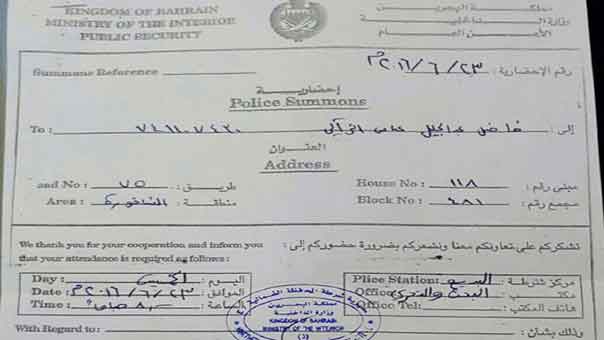 KINGDOM OF BAHRAIN مملكة البحرين
MINISTRY OF THE INTERIOR وزارة الداخلية
PUBLIC SECURITY الأمن العام
Summons Reference رقم الإحضارية : ٢٠١٦/٦/٢٣م
إحضارية
Police Summons
To : ٧٤٢٠ فاضل عبدالجليل إلى :
العنوان
Address
oad No : ٧٥ طريق : House No : ١١٨ مبنى رقم :
Area : منطقة : Block No : ٤٨١ مجمع رقم :
We thank you for your cooperation and inform you نشكركم على تعاونكم معنا ونشعركم بضرورة حضوركم إلى :
that your attendance is required as follows :
Day : الخميس اليوم : Plice Station : البديع مركز شرطة :
Date : ٢٠١٦/٦/٢٣م الموافق : Office : البحث والتحري مكتب :
Time : ٨ صباحا الساعة : Office Tel : هاتف المكتب :
With Regard to : وذلك بشأن :
مملكة البحرين
وزارة الداخلية
KINGDOM OF BAHRAIN
MINISTRY OF THE INTERIOR
(3)